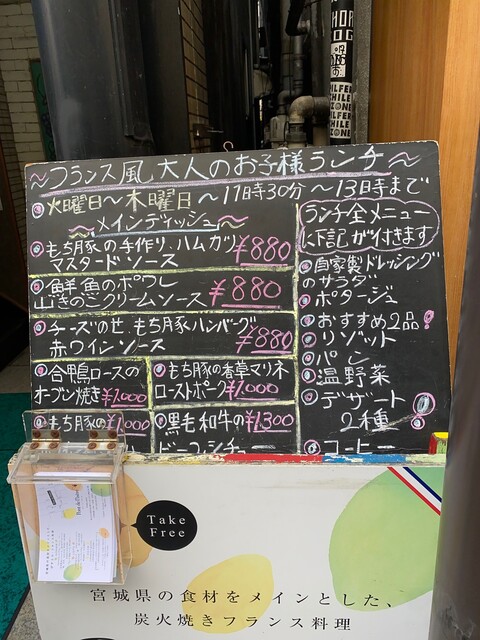 ～フランス風大人のお子様ランチ～
火曜日～木曜日～11時30分～13時まで
～メインディッシュ～
もち豚の手作りハムカツ ¥880
マスタードソース
鮮魚のポワレ
山きのこクリームソース ¥880
チーズのせ、もち豚ハンバーグ
赤ワインソース ¥880
合鴨ロースの
オーブン焼き ¥1,000
もち豚の香草マリネ
ローストポーク ¥1,000
もち豚の ¥1,000
黒毛和牛の ¥1,300
ビーフシチュー
ランチ全メニュー
に下記が付きます
自家製ドレッシング
のサラダ
ポタージュ
おすすめ2品!
リゾット
パン
温野菜
デザート
2種
コーヒー
Take
Free
宮城県の食材をメインとした、
炭火焼きフランス料理